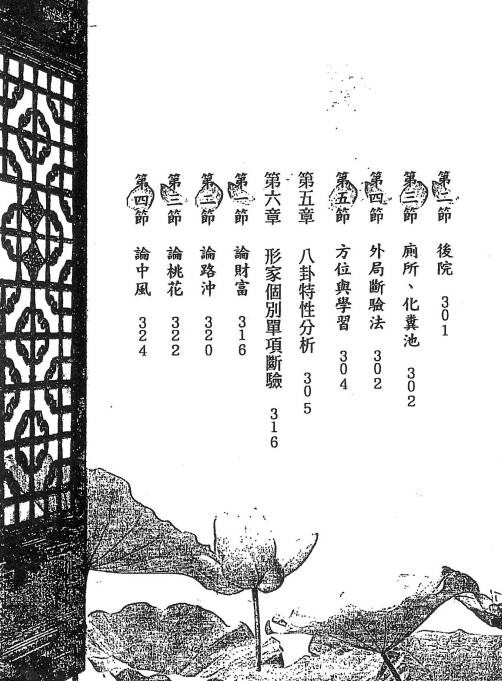 第二節 後院 301
第三節 廁所、化糞池 302
第四節 外局斷驗法 302
第五節 方位與學習 304
第五章 八卦特性分析 305
第六章 形家個別單項斷驗 316
第一節 論財富 316
第二節 論路沖 320
第三節 論桃花 322
第四節 論中風 324